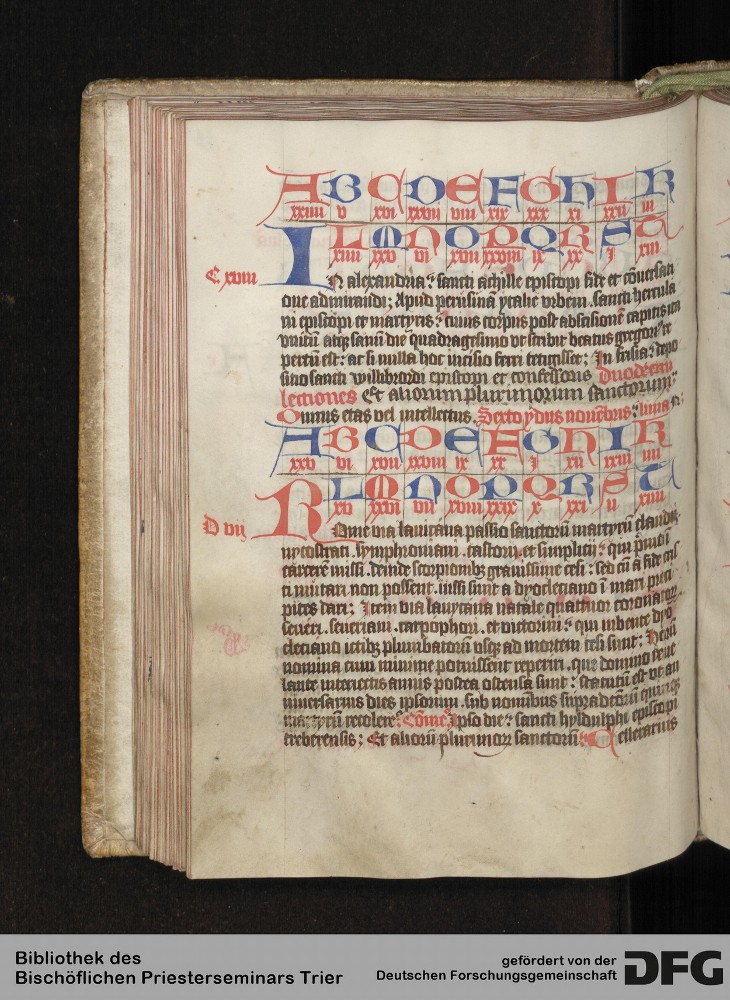 A B C D E F G H I K
xxiiii v xvi xxvii viii xix xxx xi xxii iii
L M N O P Q R S T
xiiii xxv vi xvii xxviii ix xx i xiii
C xviii
IN alexandria: sancti achille episcopi fide et cōuersati
one admirandi; Apud perusinā ytalie vrbem. sancti hercula
ni episcopi et martyris: cuius corpus post abscisionē capitis ita
vnitū atqꝫ sanū die quadragesimo vt scribit beatus gregoriꝰ re
pertū est: ac si nulla hoc incisio ferri tetigisset; In frisia: depo
sitio sancti willibrordi episcopi et confessoris Duodecim
lectiones Et aliorum plurimorum sanctorum:
Omnis etas vel intellectus. Sexto ydus nouēbris: luna
A B C D E F G H I K
xxv vi xvii xxviii ix xx i xii xxiii iiii
L M N O P Q R S T
xv xxvi vii xviii xxix x xxi ii xiiii
D vij
ROme via lauicana passio sanctorū martyrū claudij
nycostrati. symphroniani. castorij. et simplicij: qui primū
carcerē missi. deinde scorpionibꝫ grauissime cesi: sed cū a fide cris
ti mutari non possent. iussi sunt a dyocleciano ī mari preci
pites dari; Item via lauycana natale quattuor coronatoꝝ
seueri. seueriani. carpophori. et victorini: qui iubente dyo
cleciano ictibꝫ plumbatorū vsqꝫ ad mortem cesi sunt: Horū
nomina cum minime potuissent reperiri. que domino reue
lante interiectis annis postea ostensa sunt: statutū est vt an
niuersarius dies ipsorum. sub nominibus supradictorū quinqꝫ
martyrū recolereꞇ̃: Cōmeº Ipso die: sancti hyldulphi episcopi
treberensis; Et aliorū plurimoꝝ sanctorū: Cellerarius
Bibliothek des
Bischöflichen Priesterseminars Trier
gefördert von der
Deutschen Forschungsgemeinschaft
DFG